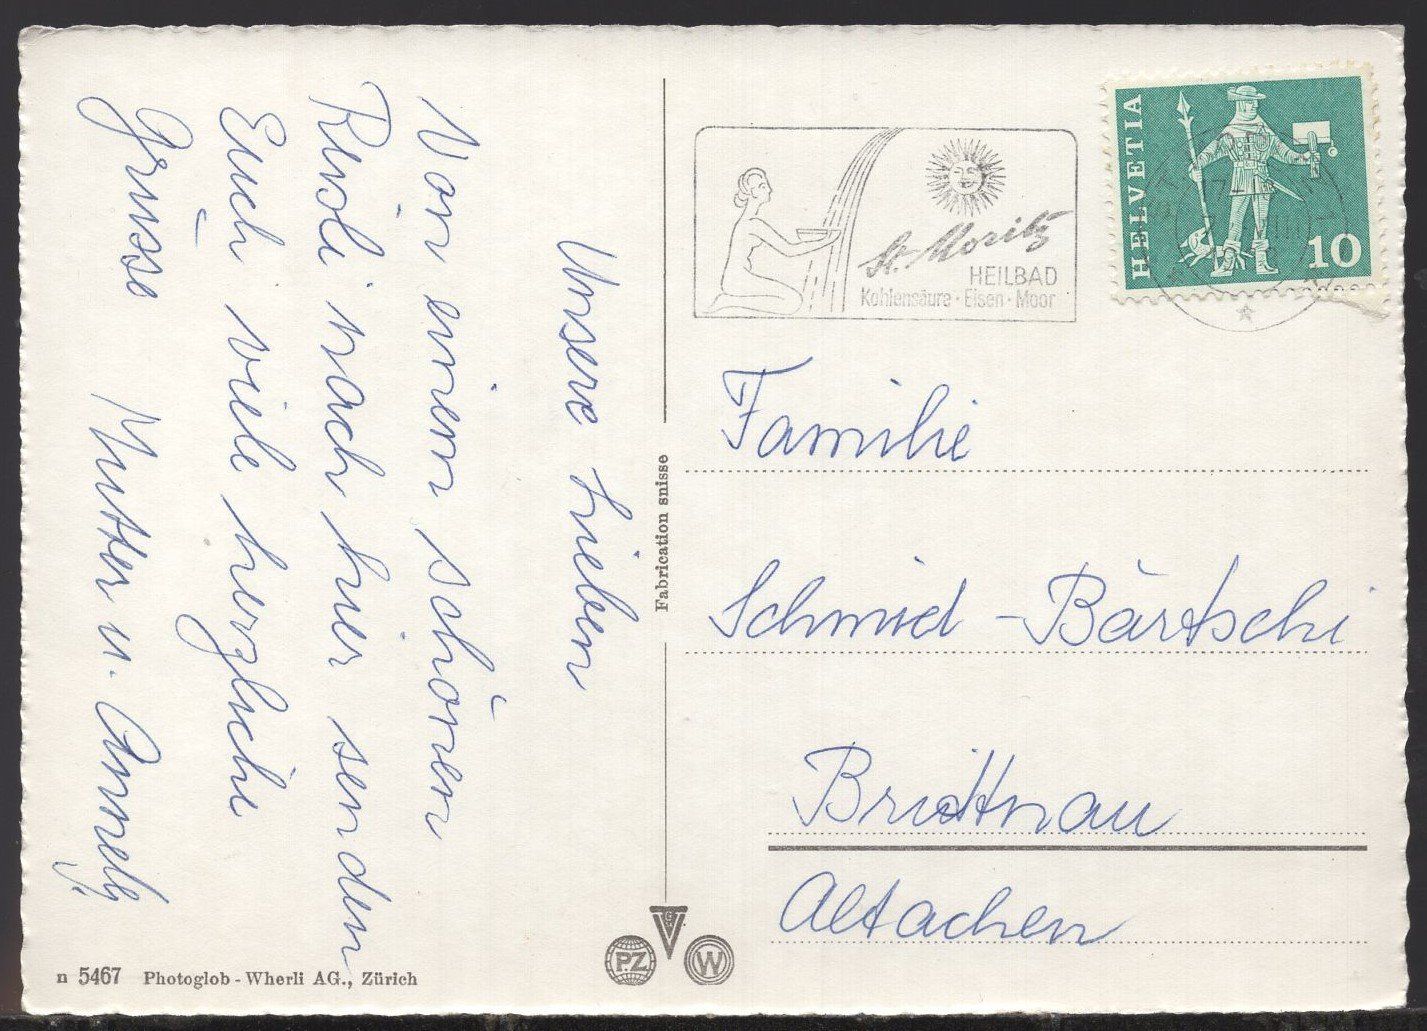 Unsere Lieben
Von einem schönen
Reisli nach hier senden
Euch viele herzliche
Grüsse
Mutter u. Annely
Fabrication suisse
St. Moritz
HEILBAD
Kohlensäure · Eisen · Moor
HELVETIA
10
Familie
Schmid - Bärtschi
Brittnau
Altachen
G
PZ
W
n 5467 Photoglob - Wherli AG., Zürich